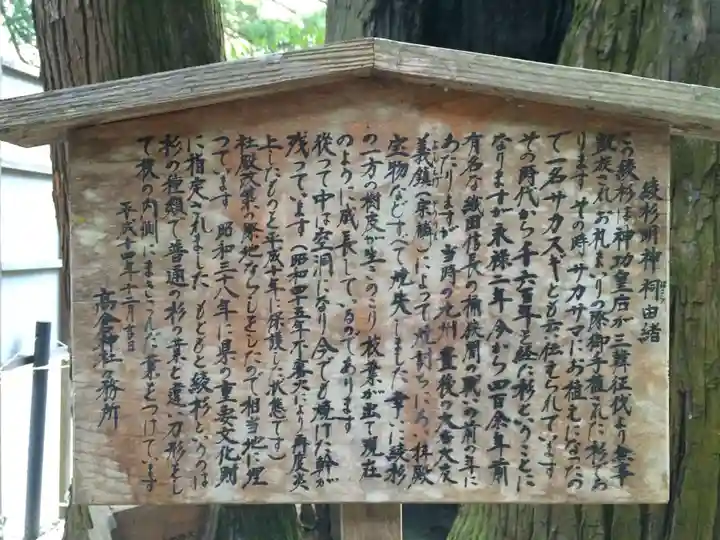 綾杉明神祠由緒
ほこら
この綾杉は神功皇后が三韓征伐より無事
凱旋されお礼まいりの際御手植された杉であ
ります その時サカサマにお植えになったの
で一名サカスギとも云伝えられています
その時代から千六百年を経た杉ということに
なりますが永禄二年今から四百余年前
有名な織田信長の桶狭間の戦いの前の年に
あたりますが当時の九州 豊後の大名大友
義鎮(宗麟)によって焼討ちにあい拝殿
宝物などすべて焼失しました 幸いに綾杉
の一方の樹皮が生きのこり枝葉が出て現在
のように成長しているのであります
従って中は空洞になり今でも焼けた幹が
残っています(昭和四十五年不審火により再度炎
上したものを平成十年に保護した状態です)
社殿改築の際地ならしをしたので相当地に埋
っています 昭和三八年に県の重要文化財
に指定されました もともと綾杉というのは
杉の種類で普通の杉の葉と違い刀形をし
て枝の内側にまきこんだ葉をつけています
平成十四年十二月吉日
高倉神社々務所